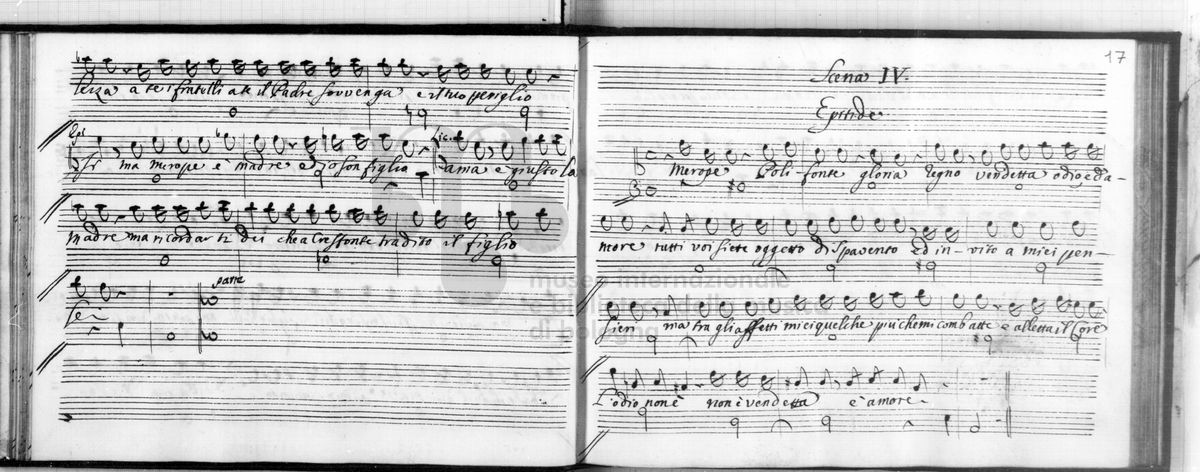 a te i fratelli a te il Padre sovvenga e il tuo periglio
Epi
si ma Merope è madre ed io son figlio
Lic.
L'ama e giusto la
Madre ma ricordar ti dei che a Cresfonte tradito il figlio
parte
sei
17
Scena IV.
Epitide
Merope Polifonte gloria regno vendetta odio ed a-
more tutti voi siete oggetto di spavento ed in-vito a miei pen-
sieri ma tra gli affetti miei quel che più chemi combatte e alletta il Core
L'odio non è non è vendetta è amore.
museo internazionale
e biblioteca della musica
di bologna